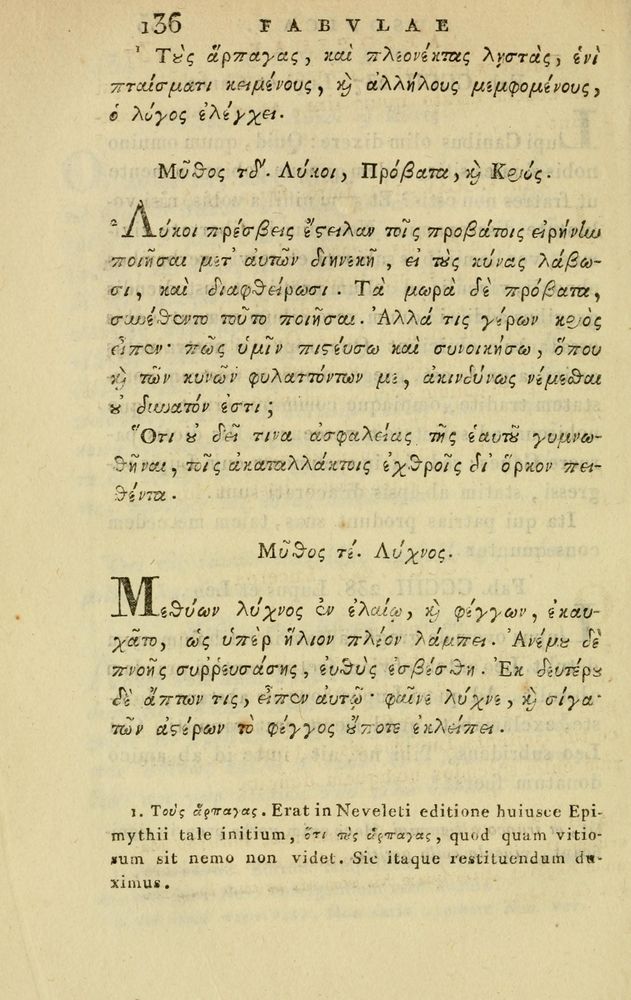 136 FABVLAE
¹ Τοὺς ἅρπαγας, καὶ πλεονέκτας λῃστὰς, ἑνὶ
πταίσματι κειμένους, καὶ ἀλλήλους μεμφομένους,
ὁ λόγος ἐλέγχει.
Μῦθος τδʹ. Λύκοι, Πρόβατα, καὶ Κριός.
² Λύκοι πρέσβεις ἔστειλαν τοῖς προβάτοις εἰρήνην
ποιῆσαι μετ' αὐτῶν διηνεκῆ, εἰ τοὺς κύνας λάβω-
σι, καὶ διαφθείρωσι. Τὰ μωρὰ δὲ πρόβατα,
συνέθεντο τοῦτο ποιῆσαι. Ἀλλά τις γέρων κριὸς
εἶπεν· πῶς ὑμῖν πιστεύσω καὶ συνοικήσω, ὅπου
καὶ τῶν κυνῶν φυλαττόντων με, ἀκινδύνως νέμεσθαι
οὐ δυνατόν ἐστι;
Ὅτι οὐ δεῖ τινα ἀσφαλείας τῆς ἑαυτοῦ γυμνω-
θῆναι, τοῖς ἀκαταλλάκτοις ἐχθροῖς δι' ὅρκον πει-
θέντα.
Μῦθος τέ. Λύχνος.
Μεθύων λύχνος ἐν ἐλαίῳ, καὶ φέγγων, ἐκαυ-
χᾶτο, ὡς ὑπὲρ ἥλιον πλέον λάμπει. Ἀνέμου δὲ
πνοῆς συῤῥευσάσης, εὐθὺς ἐσβέσθη. Ἐκ δευτέρου
δὲ ἅπτων τις, εἶπεν αὐτῷ· φαῖνε λύχνε, καὶ σίγα·
τῶν ἀστέρων τὸ φέγγος οὔποτε ἐκλείπει.
1. Τοὺς ἅρπαγας. Erat in Neveleti editione huiusce Epi-
mythii tale initium, ὅτι τοὺς ἅρπαγας, quod quam vitio-
sum sit nemo non videt. Sic itaque restituendum du-
ximus.